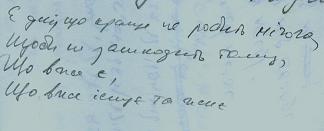 Є дні, що краще не робить нічого,
Щоби не зашкодить тому,
Що вже є,
Що вже існує та